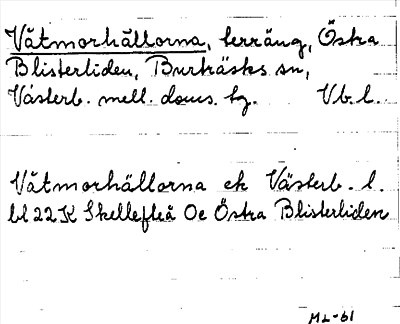 Våtmorhällorna, terräng, Östra
Blisterliden, Burträsks sn,
Västerb. mell. doms. tg. Vb. l.
Våtmorhällorna ek Västerb. l.
bl 22 K Skellefteå Oe Östra Blisterliden
ML-61